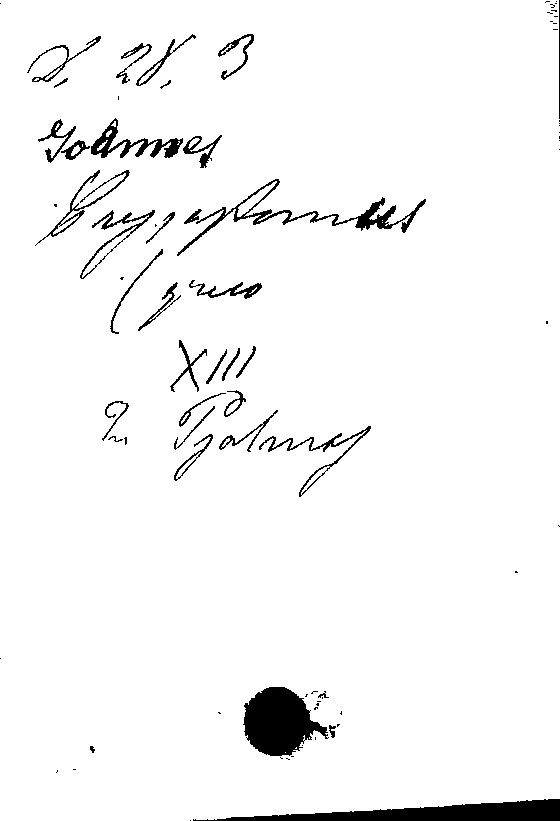 D. 28. 3
Joannes
Crysostomus
(greco
XIII
In Psalmos